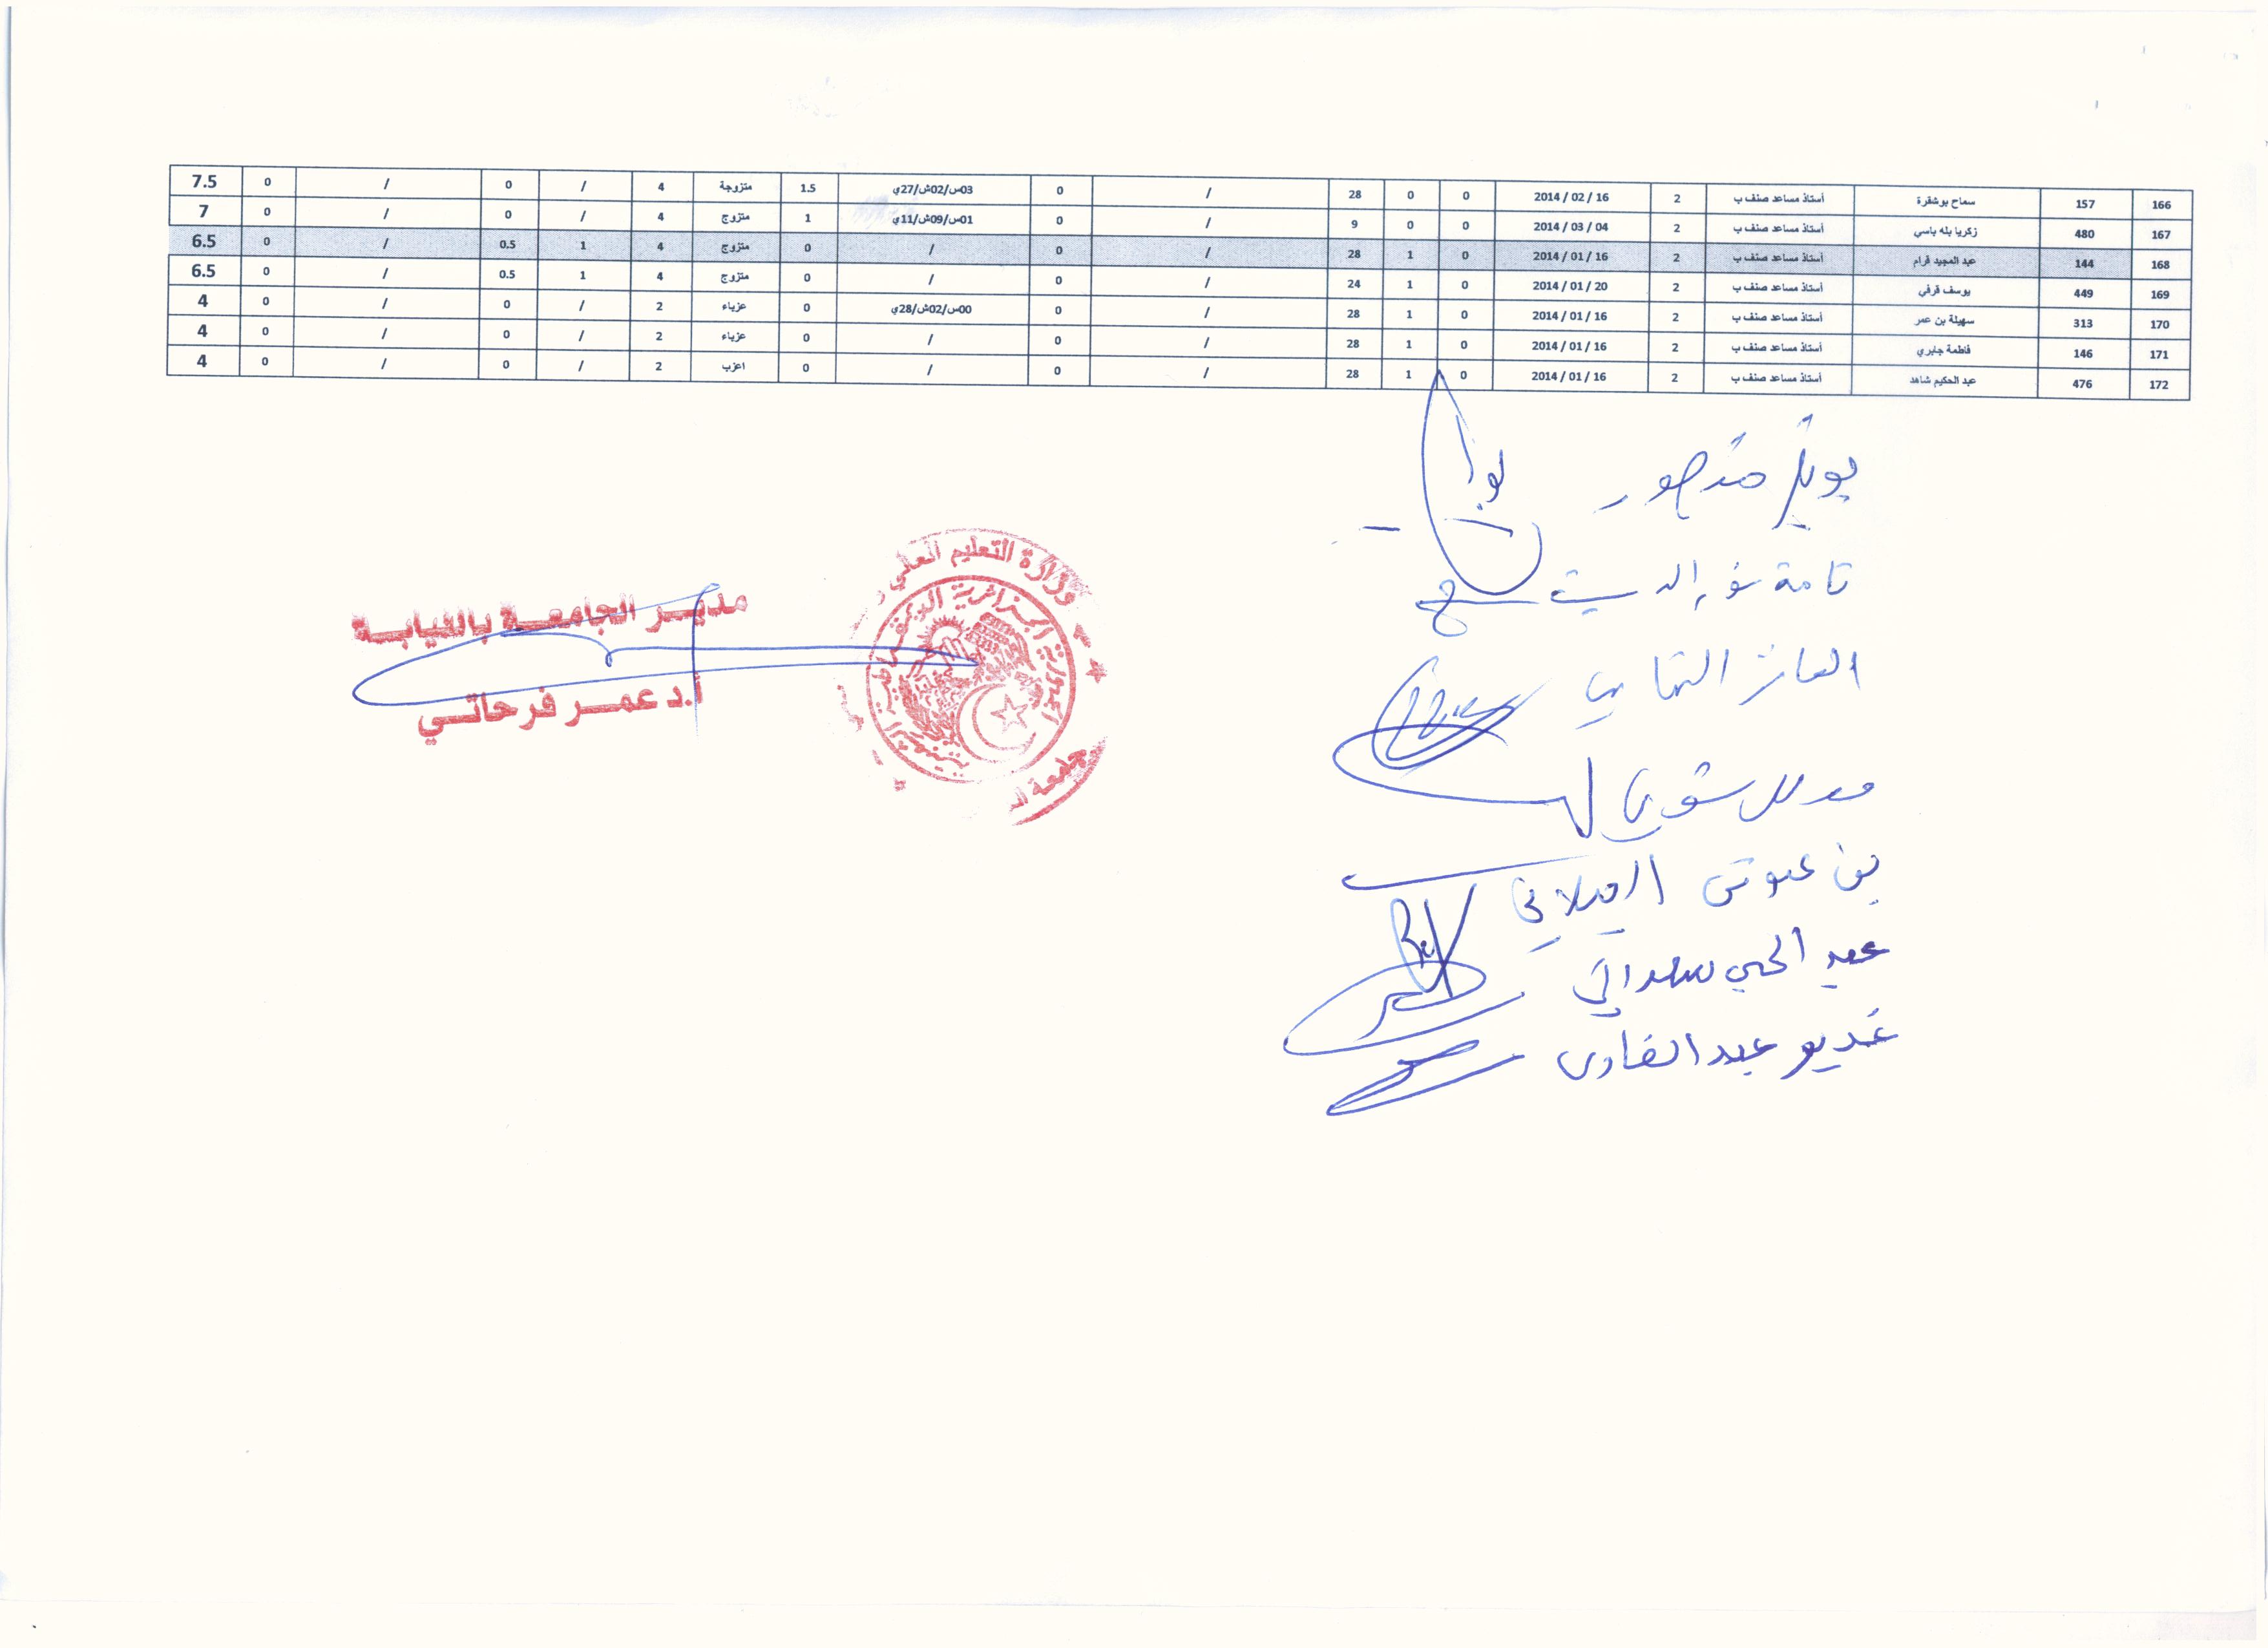 166 157 سماح بوشقرة أستاذ مساعد صنف ب 2 2014 / 02 / 16 0 0 28 / 0 03س/02ش/27ي 1.5 متزوجة 4 / 0 / 0 7.5
167 480 زكريا بله باسي أستاذ مساعد صنف ب 2 2014 / 03 / 04 0 0 9 / 0 01س/09ش/11ي 1 متزوج 4 / 0 / 0 7
168 144 عبد المجيد قرام أستاذ مساعد صنف ب 2 2014 / 01 / 16 0 1 28 / 0 / 0 متزوج 4 1 0.5 / 0 6.5
169 449 يوسف قرفي أستاذ مساعد صنف ب 2 2014 / 01 / 20 0 1 24 / 0 / 0 متزوج 4 1 0.5 / 0 6.5
170 313 سهيلة بن عمر أستاذ مساعد صنف ب 2 2014 / 01 / 16 0 1 28 / 0 00س/02ش/28ي 0 عزباء 2 / 0 / 0 4
171 146 فاطمة جابري أستاذ مساعد صنف ب 2 2014 / 01 / 16 0 1 28 / 0 / 0 عزباء 2 / 0 / 0 4
172 476 عبد الحكيم شاهد أستاذ مساعد صنف ب 2 2014 / 01 / 16 0 1 28 / 0 / 0 اعزب 2 / 0 / 0 4
منصور
تامة نور الدين
التهامي
شوقي
بن عبد الحي
غديو عبد القادر
وزارة التعليم العالي
مدير الجامعة بالنيابة
أ.د عمر فرحاتي